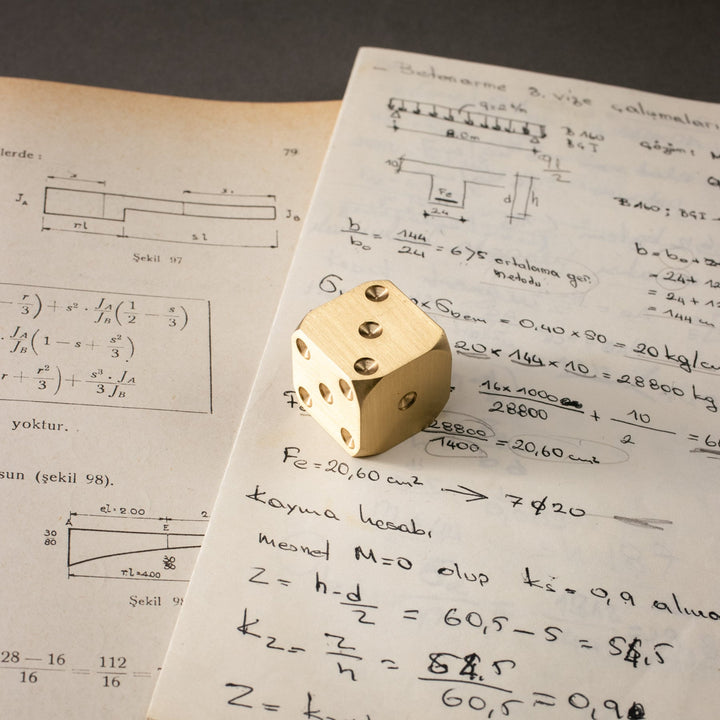 lerde :
79
J_A
J_B
r.l
s.l
Şekil 97
r/3) + s² · J_A/J_B (1/2 − s/3)
· J_A/J_B (1 − s + s²/3)
r + r²/3) + s³ · J_A / 3 J_B
yoktur.
sun (şekil 98).
el=2.00
2
A
E
30
80
30
80
r.l=4.00
Şekil 9
28 − 16 / 16 = 112 / 16 =
– Betonarme 3. vize çalışmaları
q=2 t/m
8.0m
B 160
BÇ I
Çözüm:
ql/2
10
Fe
24
d
h
B160; BÇI
b/b₀ = 144/24 = 6
ortalama
metodu
b = b₀ +
= 24 + 12
= 24 + 12
= 144
x σbem = 0,40 x 90 = 20 kg/c
20 x 144 x 10 = 28800 kg
= 16x1000 / 28800 + 10 / 2 = 6
28800 / 1400 = 20,60 cm²
Fe = 20,60 cm² → 7φ20
Kayma hesabı
mesnet M=0 olup
= 0,9
Z = h - d/2 = 60,5 – 5 =
kz = Z/h =
60,5 = 0,9
Z =